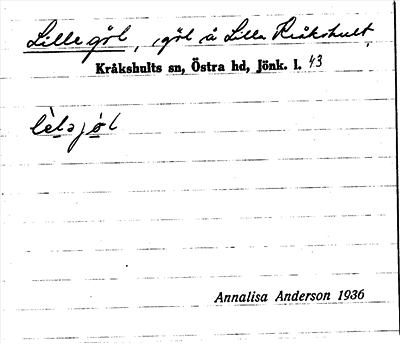 Lillegöl, göl å Lilla Kråkshult,
Kråkshults sn, Östra hd, Jönk. l. 43
lèləjö̀l
Annalisa Anderson 1936